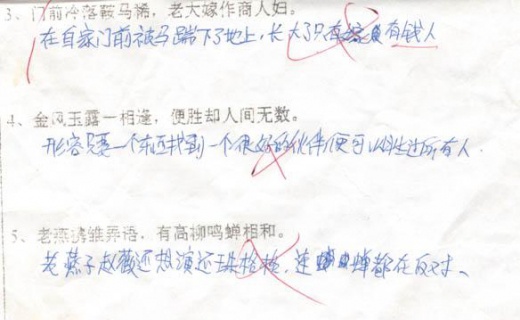 3、门前冷落鞍马稀，老大嫁作商人妇。
在自家门前被马踹下了地上，长大了只有嫁 有钱人
4、金风玉露一相逢，便胜却人间无数。
形容只要一个东西找到一个很好的伙伴便可以胜过所有人.
5、老燕携雏弄语，有高柳鸣蝉相和。
老燕子赵薇还想演还珠格格，连 蝉都在反对、